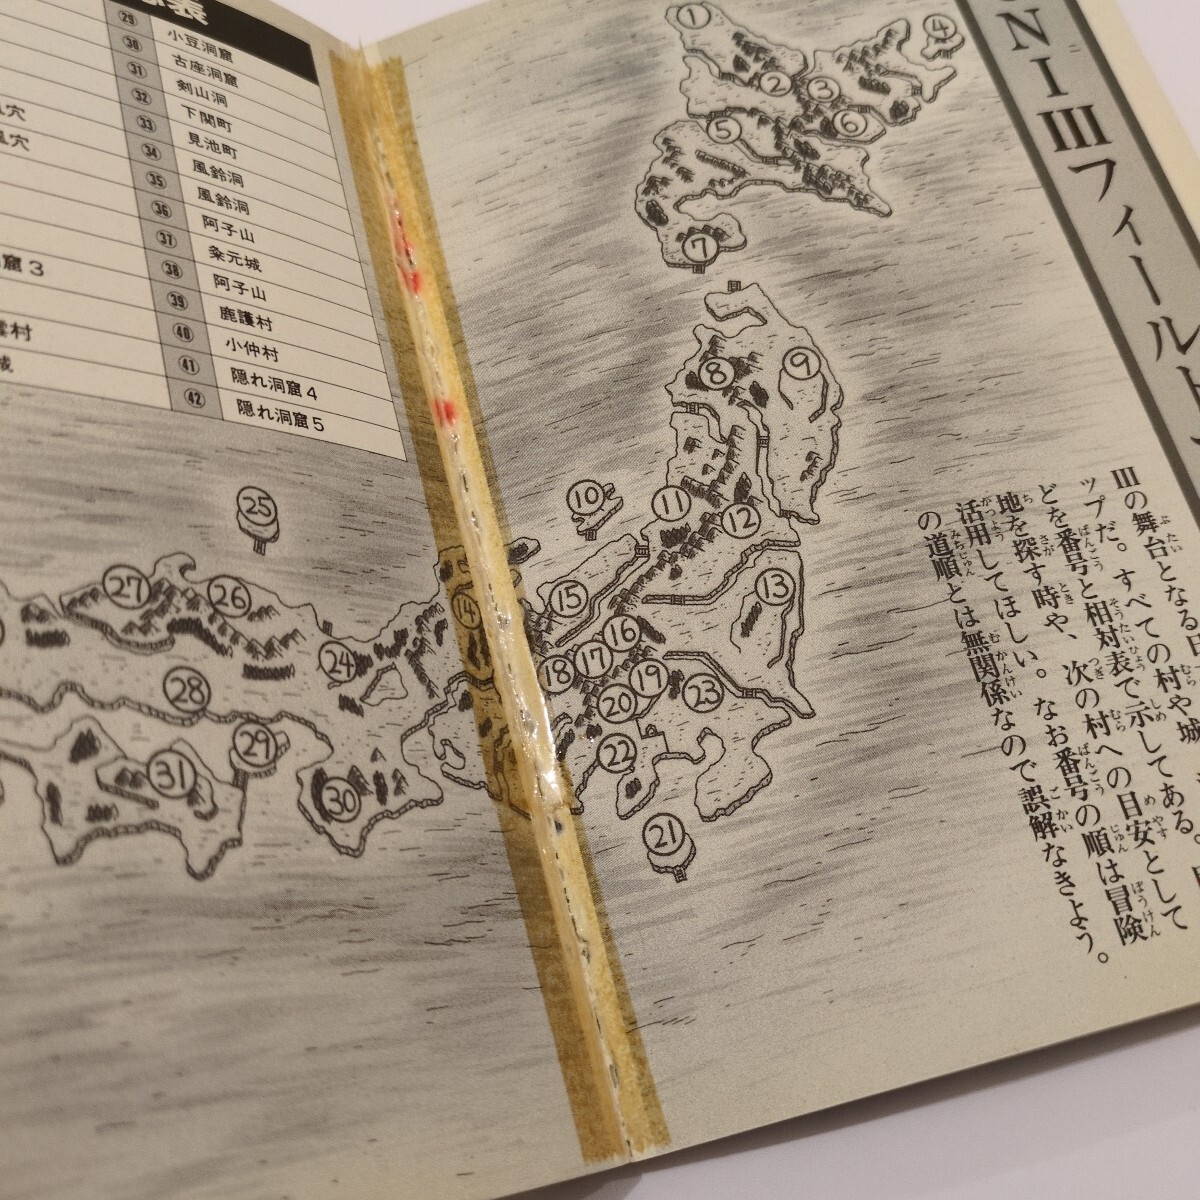 ⅠⅢフィールド
Ⅲの舞台となる
ップだ。すべての村や城
どを番号と相対表で示してある。
地を探す時や、次の村への目安として
活用してほしい。なお番号の順は冒険
の道順とは無関係なので誤解なきよう。
①
②
③
④
⑤
⑥
⑦
⑧
⑨
⑩
⑪
⑫
⑬
⑭
⑮
⑯
⑰
⑱
⑲
⑳
㉑
㉒
㉓
㉔
㉕
㉖
㉗
㉘
㉙
㉚
㉛
表
㉙ 小豆洞窟
㉚ 古座洞窟
㉛ 剣山洞
㉜ 下関町
㉝ 見池町
㉞ 風鈴洞
㉟ 風鈴洞
㊱ 阿子山
㊲ 粂元城
㊳ 阿子山
㊴ 鹿護村
㊵ 小仲村
㊶ 隠れ洞窟4
㊷ 隠れ洞窟5
穴
穴
窟3
村
城